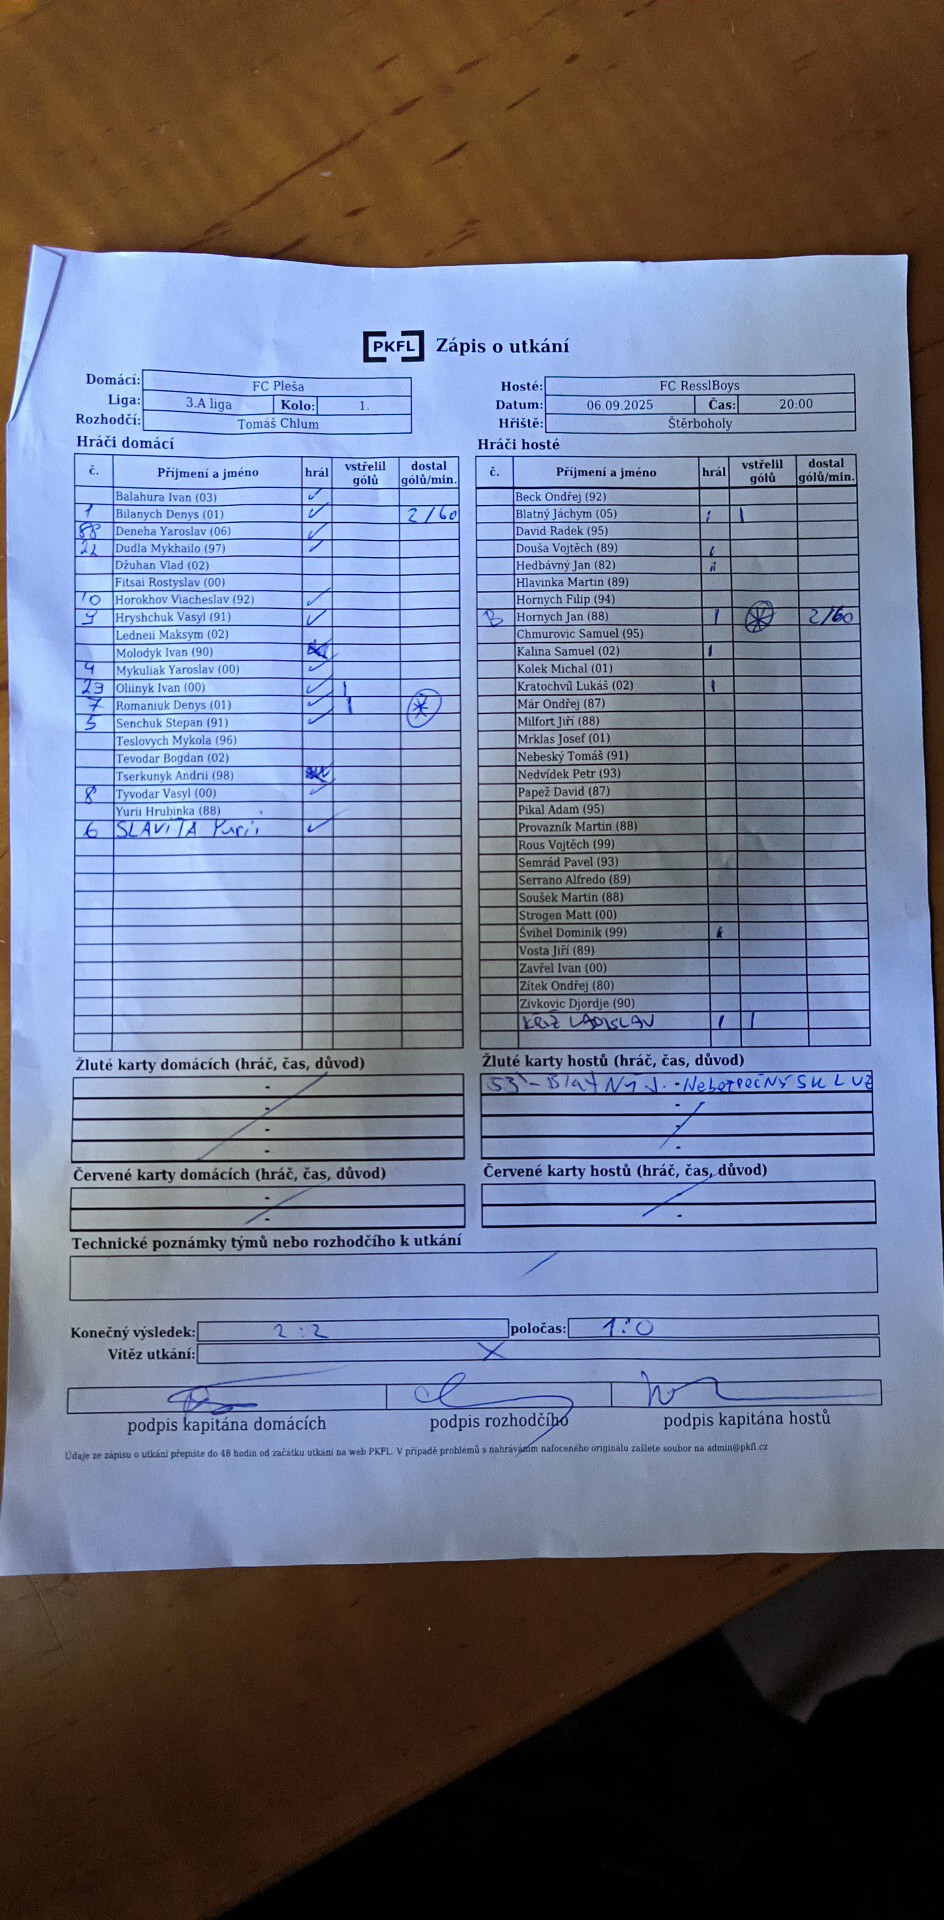 PKFL Zápis o utkání
Domácí: FC Pleša
Liga: 3.A liga Kolo: 1.
Rozhodčí: Tomáš Chlum
Hosté: FC ResslBoys
Datum: 06.09.2025 Čas: 20:00
Hřiště: Štěrboholy
Hráči domácí
č. Příjmení a jméno hrál vstřelil gólů dostal gólů/min.
Balahura Ivan (03) ✓
1 Bilanych Denys (01) ✓ 2/60
88 Deneha Yaroslav (06) ✓
22 Dudla Mykhailo (97) ✓
Džuhan Vlad (02)
Fitsai Rostyslav (00)
10 Horokhov Viacheslav (92) ✓
9 Hryshchuk Vasyl (91) ✓
Lednei Maksym (02)
Molodyk Ivan (90)
4 Mykuliak Yaroslav (00) ✓
23 Oliinyk Ivan (00) ✓ 1
7 Romaniuk Denys (01) ✓ 1
5 Senchuk Stepan (91) ✓
Teslovych Mykola (96)
Tevodar Bogdan (02)
Tserkunyk Andrii (98)
8 Tyvodar Vasyl (00) ✓
Yurii Hrubinka (88)
6 SLAVITA Yurii ✓
Hráči hosté
č. Příjmení a jméno hrál vstřelil gólů dostal gólů/min.
Beck Ondřej (92)
Blatný Jáchym (05) 1 1
David Radek (95)
Douša Vojtěch (89) 1
Hedbávný Jan (82) 1
Hlavinka Martin (89)
Hornych Filip (94)
B Hornych Jan (88) 1 2/60
Chmurovic Samuel (95)
Kalina Samuel (02) 1
Kolek Michal (01)
Kratochvíl Lukáš (02) 1
Már Ondřej (87)
Milfort Jiří (88)
Mrklas Josef (01)
Nebeský Tomáš (91)
Nedvídek Petr (93)
Papež David (87)
Pikal Adam (95)
Provazník Martin (88)
Rous Vojtěch (99)
Semrád Pavel (93)
Serrano Alfredo (89)
Soušek Martin (88)
Strogen Matt (00)
Švihel Dominik (99) 1
Vosta Jiří (89)
Zavřel Ivan (00)
Zítek Ondřej (80)
Zivkovic Djordje (90)
KŘÍŽ LADISLAV 1 1
Žluté karty domácích (hráč, čas, důvod)
-
-
-
-
Žluté karty hostů (hráč, čas, důvod)
53' - BlatNÝ J. - NebezpečNÝ SKLUZ
-
-
-
Červené karty domácích (hráč, čas, důvod)
-
-
Červené karty hostů (hráč, čas, důvod)
-
-
Technické poznámky týmů nebo rozhodčího k utkání
Konečný výsledek: 2:2 poločas: 1:0
Vítěz utkání: X
podpis kapitána domácích podpis rozhodčího podpis kapitána hostů
Údaje ze zápisu o utkání přepište do 48 hodin od začátku utkání na web PKFL. V případě problémů s nahráváním nafoceného originálu zašlete soubor na admin@pkfl.cz